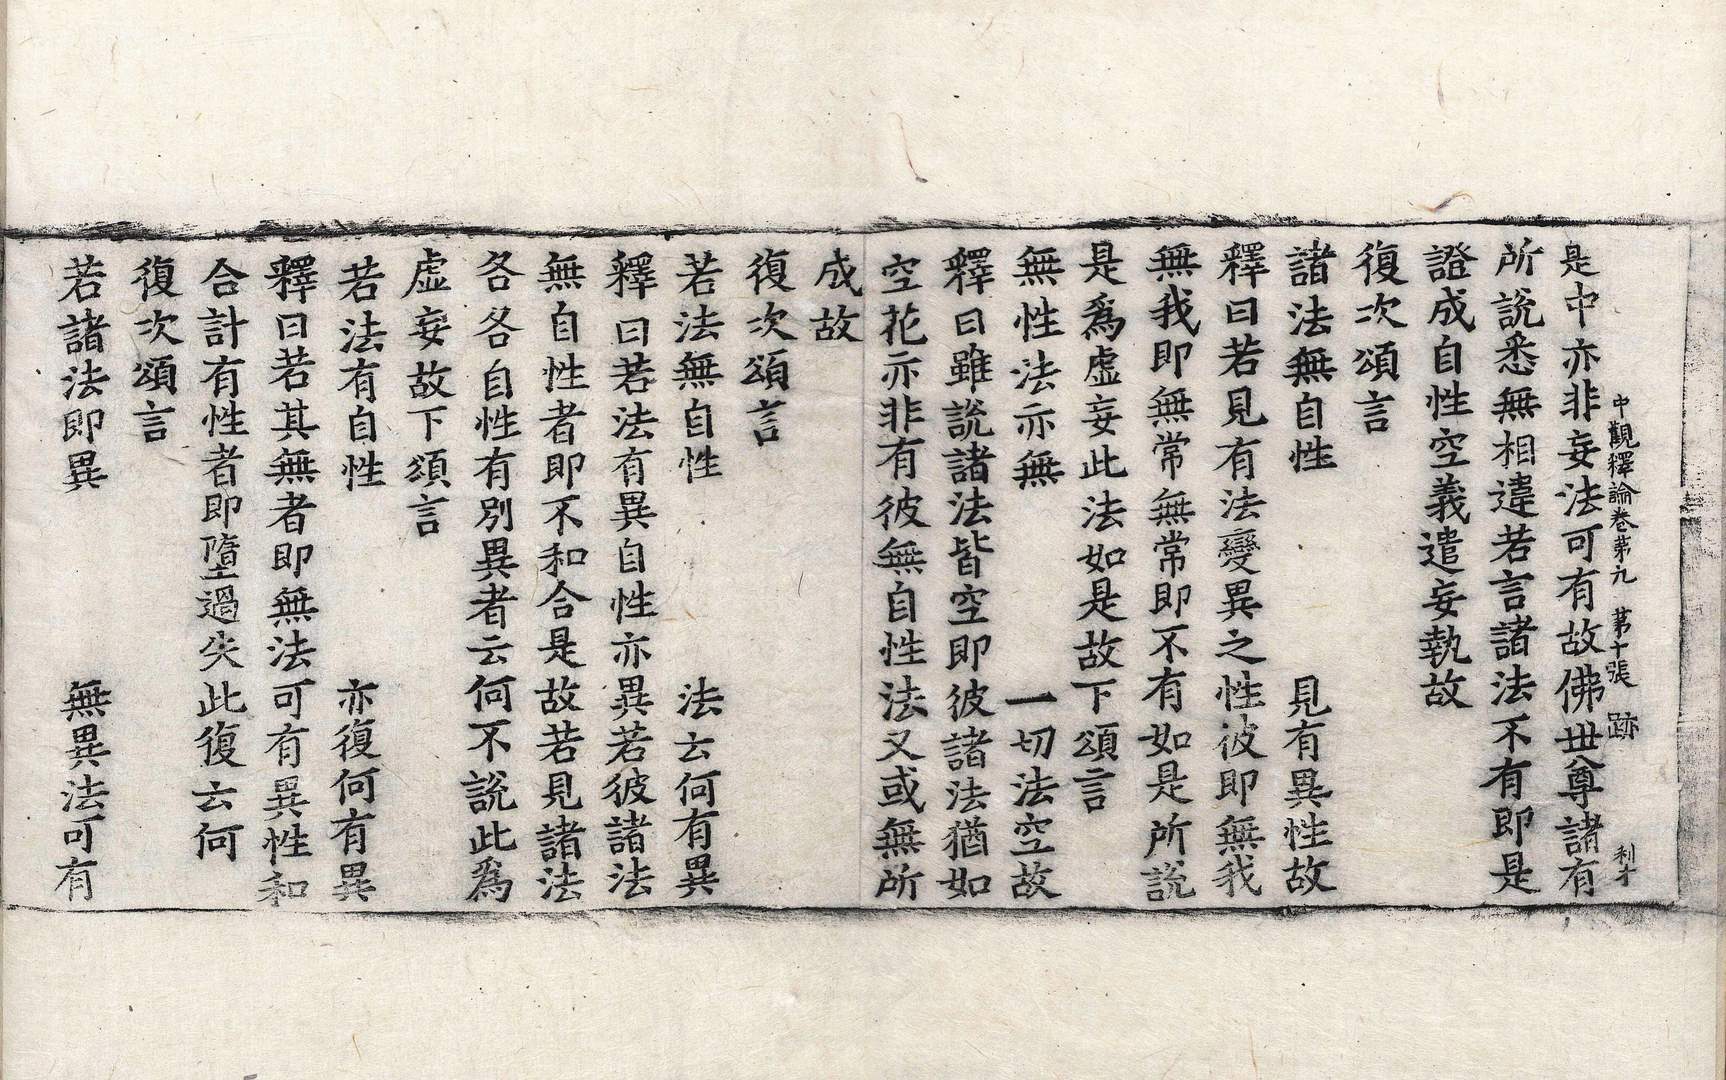 中觀釋論卷第九 第十張 跡 利才
是中亦非妄法可有故佛世尊諸有
所說悉無相違若言諸法不有即是
證成自性空義遣妄執故
復次頌言
諸法無自性 見有異性故
釋曰若見有法變異之性彼即無我
無我即無常無常即不有如是所說
是爲虛妄此法如是故下頌言
無性法亦無 一切法空故
釋曰雖說諸法皆空即彼諸法猶如
空花亦非有彼無自性法又或無所
成故
復次頌言
若法無自性 法云何有異
釋曰若法有異自性亦異若彼諸法
無自性者即不和合是故若見諸法
各各自性有別異者云何不說此爲
虛妄故下頌言
若法有自性 亦復何有異
釋曰若其無者即無法可有異性和
合計有性者即墮過失此復云何
復次頌言
若諸法即異 無異法可有